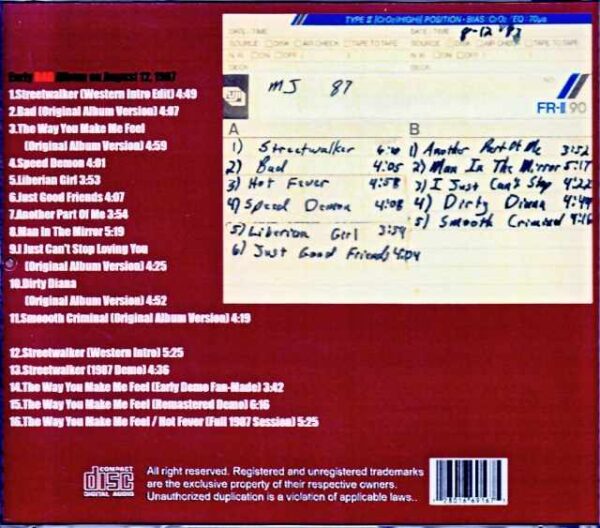 Early BAD Album on August 12, 1987
1.Streetwalker (Western Intro Edit) 4:49
2.Bad (Original Album Version) 4:07
3.The Way You Make Me Feel
(Original Album Version) 4:59
4.Speed Demon 4:01
5.Liberian Girl 3:53
6.Just Good Friends 4:07
7.Another Part Of Me 3:54
8.Man In The Mirror 5:19
9.I Just Can't Stop Loving You
(Original Album Version) 4:25
10.Dirty Diana
(Original Album Version) 4:52
11.Smoooth Criminal (Original Album Version) 4:19
12.Streetwalker (Western Intro) 5:25
13.Streetwalker (1987 Demo) 4:36
14.The Way You Make Me Feel (Early Demo Fan-Made) 3:42
15.The Way You Make Me Feel (Remastered Demo) 6:16
16.The Way You Make Me Feel / Hot Fever (Full 1987 Session) 5:25
TYPE II [CrO2(HIGH)] POSITION · BIAS: CrO2 / EQ: 70µs
DATE · TIME DATE · TIME 8-12 '87
SOURCE DISK AIR CHECK TAPE TO TAPE SOURCE DISK AIR CHECK TAPE TO TAPE
N.R. ON OFF ( ) N.R. ON OFF ( )
DECK DECK
MJ 87
NO.
FR-II 90
A
1) Streetwalker
2) Bad 4:05
3) Hot Fever 4:58
4) Speed Demon 4:08
5) Liberian Girl 3:54
6) Just Good Friends 4:04
B
1) Another Part Of Me 3:52
2) Man In The Mirror 5:17
3) I Just Can't Stop 4:22
4) Dirty Diana 4:49
5) Smooth Criminal 4:16
COMPACT
disc
DIGITAL AUDIO
All right reserved. Registered and unregistered trademarks
are the exclusive property of their respective owners.
Unauthorized duplication is a violation of applicable laws..